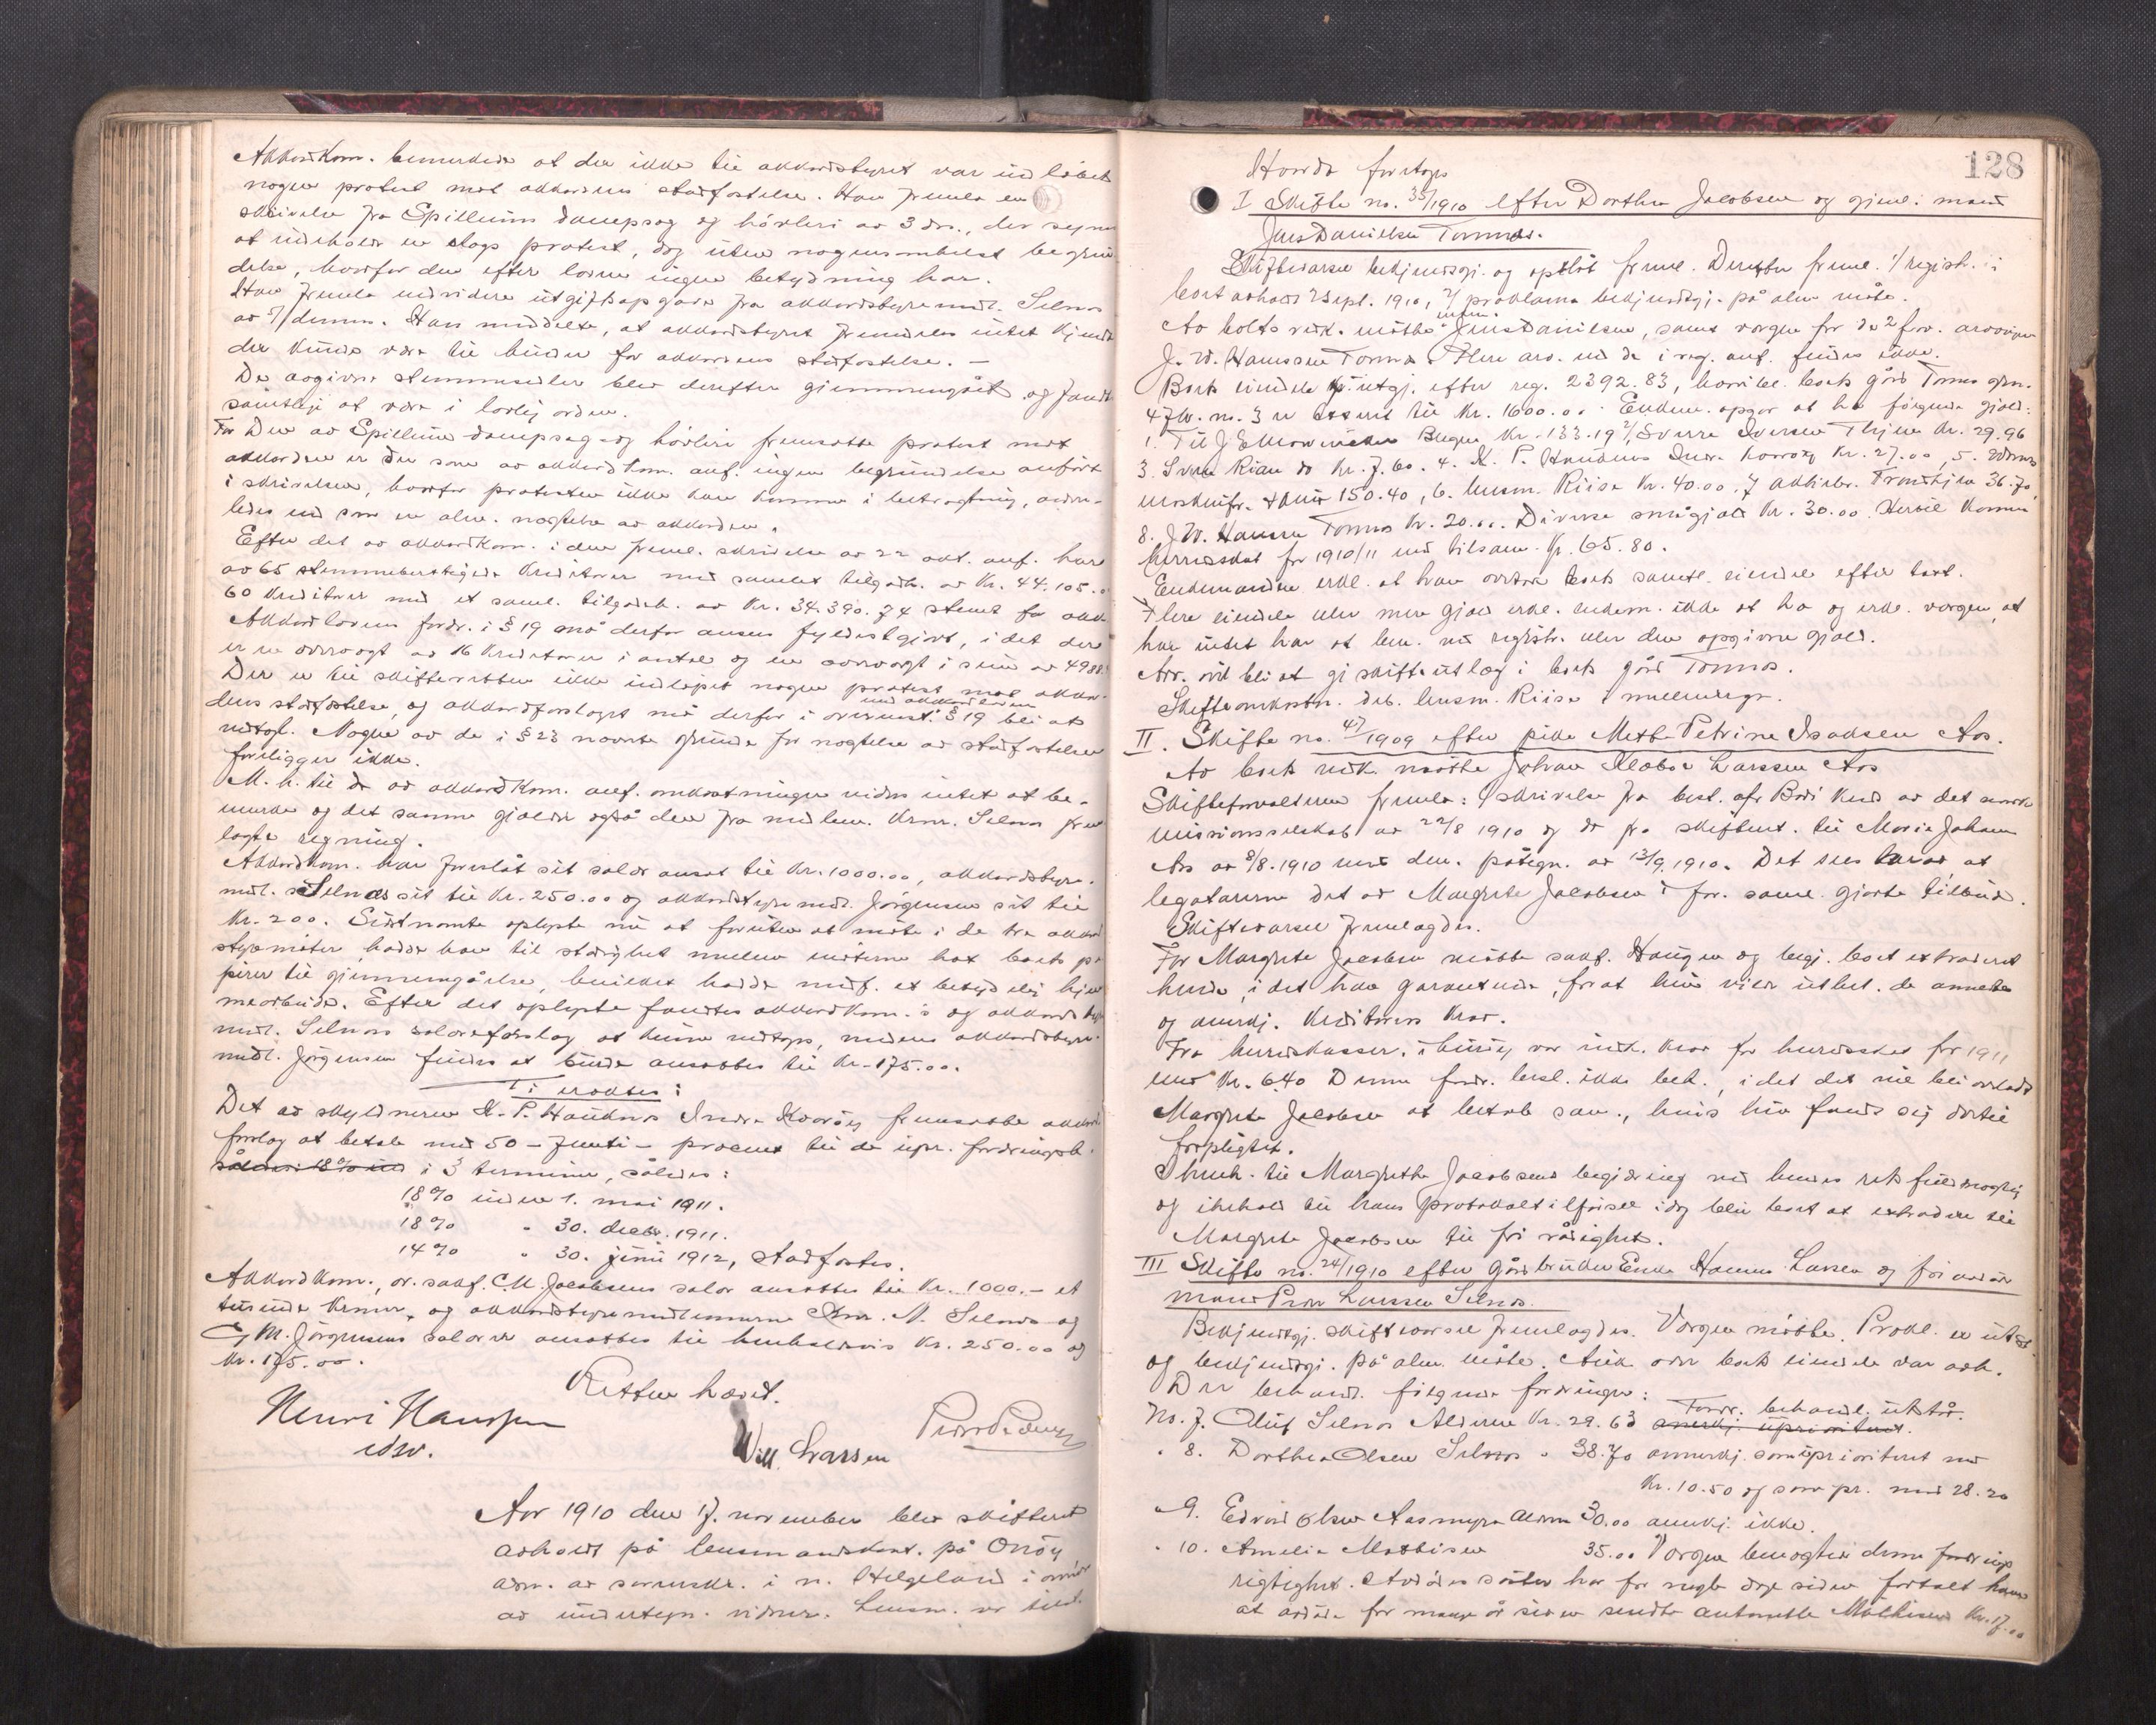 Akkordkom. bemerkede at der ikke til akkordstyret var indløbet
nogen protest mot akkordens stadfæstelse. Han freml. en
skrivelse fra Spillum dampsag og høvleri av 3 ds., der synes
at indeholde en slags protest, dog uten nogensomhelst begrun
delse, hvorfor den efter loven ingen betydning har.
Han freml. endvidere utgiftsopgave fra akkordstyremedl. Selnæs
av 7/ dennes. Han meddelte, at akkordstyret fremdeles intet kjendte
der kunde være til hinder for akkordens stadfæstelse. –
De avgivne stemmesedler blev derefter gjennemgået og fandtes
samtlige at være i lovlig orden.
For den av Spillum dampsag og høvleri fremsatte protest mot
akkorden er der som av akkordkom. anf. ingen begrundelse anført
i skrivelsen, hvorfor protesten ikke kan komme i betragtning, ander-
ledes end som en alm. nægtelse av akkorden.
Efter det av akkordkom. i den freml. skrivelse av 22 okt. anf. har
av 65 stemmeberettigede kreditorer med samlet tilgodeh. av Kr. 44.105.
60 kreditorer med et saml. tilgodeh. av Kr. 34.390.74 stemt for akk.
Akkordlovens fordr. i § 19 må derfor ansees fyldestgjort, idet der
er en overvægt av 16 kreditorer i antal og en overvægt i sum av 4988
Der er til skifteretten ikke indløpet nogen protest mot akkor-
dens stadfæstelse, og akkordforslaget må derfor i overensst. med akkordloven § 19 bli at
vedtage. Nogen av de i § 23 nævnte grunde for nægtelse av stadfæstelse
foreligger ikke.
M. h. til de av akkordkom. anf. omkostninger vides intet at be-
merke og det samme gjælder også den fra medlem. Krmr. Selnæs frem
lagte regning.
Akkordkom. har foreslåt sit salær ansat til Kr. 1000.00, akkordstyre-
medl. Selnæs sit til Kr. 250.00 og akkordstyremedl. Jørgensen sit til
Kr. 200. Sidstnævnte oplyste nu at foruten at møte i de tre akkord
styremøter, hadde han til stadighet mellem møterne hat boets pa
pirer til gjennemgåelse, hvilket hadde medf. et betydelig hjem
mearbeide. Efter det oplyste fandtes akkordkom.s og akkordstyre
medl. Selnæs salæreforslag at kunne vedtages, medens akkordstyre-
medl. Jørgensen findes at burde ansættes til Kr. 175.00.
Ti eragtes:
Det av skyldneren K. P. Hauknes Indre Kvarøy fremsatte akkord
forslag at betale med 50 – femti – procent til de upr. fordringsh.
således 18 % ind i 3 terminer, således:
18 % inden 1. mai 1911.
18 % " 30. decbr. 1911.
14 % " 30. juni 1912, stadfæstes.
Akkordkom., or. sakf. C. M. Jacobsens salær ansættes til Kr. 1000.– et
tusinde kroner, og akkordstyremedlemmerne Krmr. N. Selnæs og
M. Jørgensens salærer ansættes til henholdsvis Kr. 250.00 og
Kr. 175.00.
Retten hævet.
Henri Hanssen
edsv.
Will. Larssen
Aar 1910 den 17. november blev skifteret
avholdt på lensmandskont. på Onøy
adm. av sorenskr. i n. Helgeland i overvær
av undertegn. vidner. Lensm. var tilst.
128
Hvorda foretoges
I Skifte no. 35/1910 efter Dorthea Jacobsen og gjenl. mand
Jens Danielsen Tonnes.
Skiftevarsel bekjendtgj. og opslåt freml. Derefter freml. 1/ registr. i
boet avholdt 2 sept. 1910, 2/ proklama bekjendtgj. på alm. måte.
Av boets vedk. møtte enkem. Jens Danielsen, samt vergen for de 2 frav. arvinger
J. W. Hanssen Tonnes. Flere arv. end de i reg. anf. findes ikke.
Boets eiendele utgj. efter reg. 2392.83, hvori bl. boets gård Tonnes gbn.
47 b. no. 3 er ansat til Kr. 1600.00. Enkem. opgav at ha følgende gjæld:
1. Til J E Mowinckel Bergen Kr. 133.19 2/ Sverre Iversen Thjem Kr. 29.96
3. Sven Rian do Kr. 7.60. 4. K. P. Haukenes Indr. Kvarøy Kr. 27.00, 5.
150.40, 6. lensm. Riise Kr. 40.00. 7 Trondhjem 36.70,
8. J. W. Hanssen Tonnes Kr. 20.00. Diverse smågjæld Kr. 30.00. Hertil kommer
herredsskat for 1910/11 med tilsam. Kr. 65.80.
Enkemanden erkl. at han overtar boets samtl. eiendele efter takst.
Flere eiendele eller mere gjæld erkl. enkem. ikke at ha og erkl. vergen, at
han intet har at bem. ved registr. eller den opgivne gjæld.
Arv. vil bli at gi skifteutlæg i boets gård Tonnes.
Skifteomkostn. deb. lensm. Riise i mellemregn.
II. Skifte no. 47/1909 efter pike Mette Petrine Isaksen Aas.
Av boets vedk. møtte Johan Klæboe Larssen Aas
Skifteforvalteren freml.: 1/ skrivelse fra best. afr. Bodø kreds av det norske
missionsselskab av 22/8 1910 og do fra skifteret. til Marie Johans
Aas av 8/8.1910 med den. påtegn. av 13/9.1910. Det sees herav at
legatarerne det av Margrete Jacobsen i for. saml. gjorte tilbud.
Skiftevarsel fremlagdes.
For Margrete Jacobsen møtte sakf. Haugen og begj. boet extraderet
hende, idet han garanterede, for at hun vilde utbet. de anmeldte
og anerkj. kreditorers krav.
Fra herredskasser. i Lurøy var indk. krav for herredsskat for 1911
med Kr. 6.40 Denne fordr. besl. ikke bet., idet det vil bli overladt
Margrete Jacobsen at betale sam., hvis hun fandt sig dertil
forpligtet.
I henh. til Margrethe Jacobsens begjæring ved hendes rettsfuldmægtig
og i henhold til hans protokoltilførsel idag blir boet at extradere til
Margrete Jacobsen til fri rådighet.
III Skifte no. 24/1910 efter gårdbruker Enke Hanna Larsen og foravdøde
mand Peder Larssen Selnæs.
Bekjendtgj. skiftevarsel fremlagdes. Vergen møtte. Prokl. er utst.
og bekjendtgj. på alm. måte. Auk. over boets eiendele var avh.
Der behandl. følgende fordringer:
No. 7. Oluf Selnæs Alderen Kr. 29.63 anerkj. uprioriteret. Fordr. behandl. utstår.
" 8. Dorthea Olsen Selnæs " 38.70 annerkj. som uprioriteret med
Kr. 10.50 og som pr. med 28.20
" 9. Edvard Olsen Aasmyra Aldern 30.00 anerkj. ikke.
" 10. Amelie Mathisen 35.00 Vergen benegtede denne fordrings
rigtighet. Avdødes søster har for nogle dage siden fortalt ham
at avdøde for mange år siden sendte Mathisen Kr. 17.00